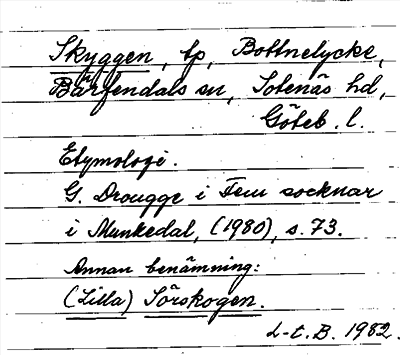 Skyggen, tp, Bottnelycke,
Bärfendals sn, Sotenäs hd,
Göteb. l.
Etymologi.
G. Drougge i Fem socknar
i Munkedal, (1980), s. 73.
Annan benämning:
(Lilla) Sörskogen.
L-t. B. 1982.